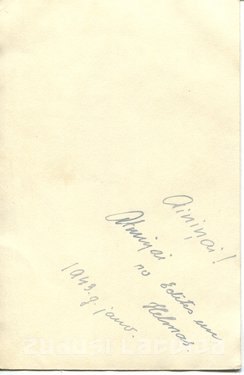 Ainiņai!
Atmiņai no Editas un
Helmas
1943.g. janv.
ZUDUSI LATVIJA